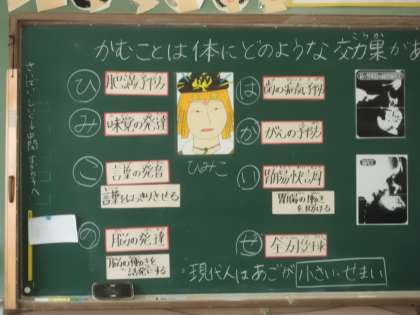 かむことは体にどのような効果があ
ひ 肥満予防
み 味覚の発達
こ 言葉の発音
言葉をはっきりさせる
の 脳の発達
脳の働きを
活発にする
ひみこ
は 歯の病気予防
が がんの予防
い 胃腸快調
胃腸の働きを
助ける
ぜ 全力投球
現代人はあごが小さい、せまい